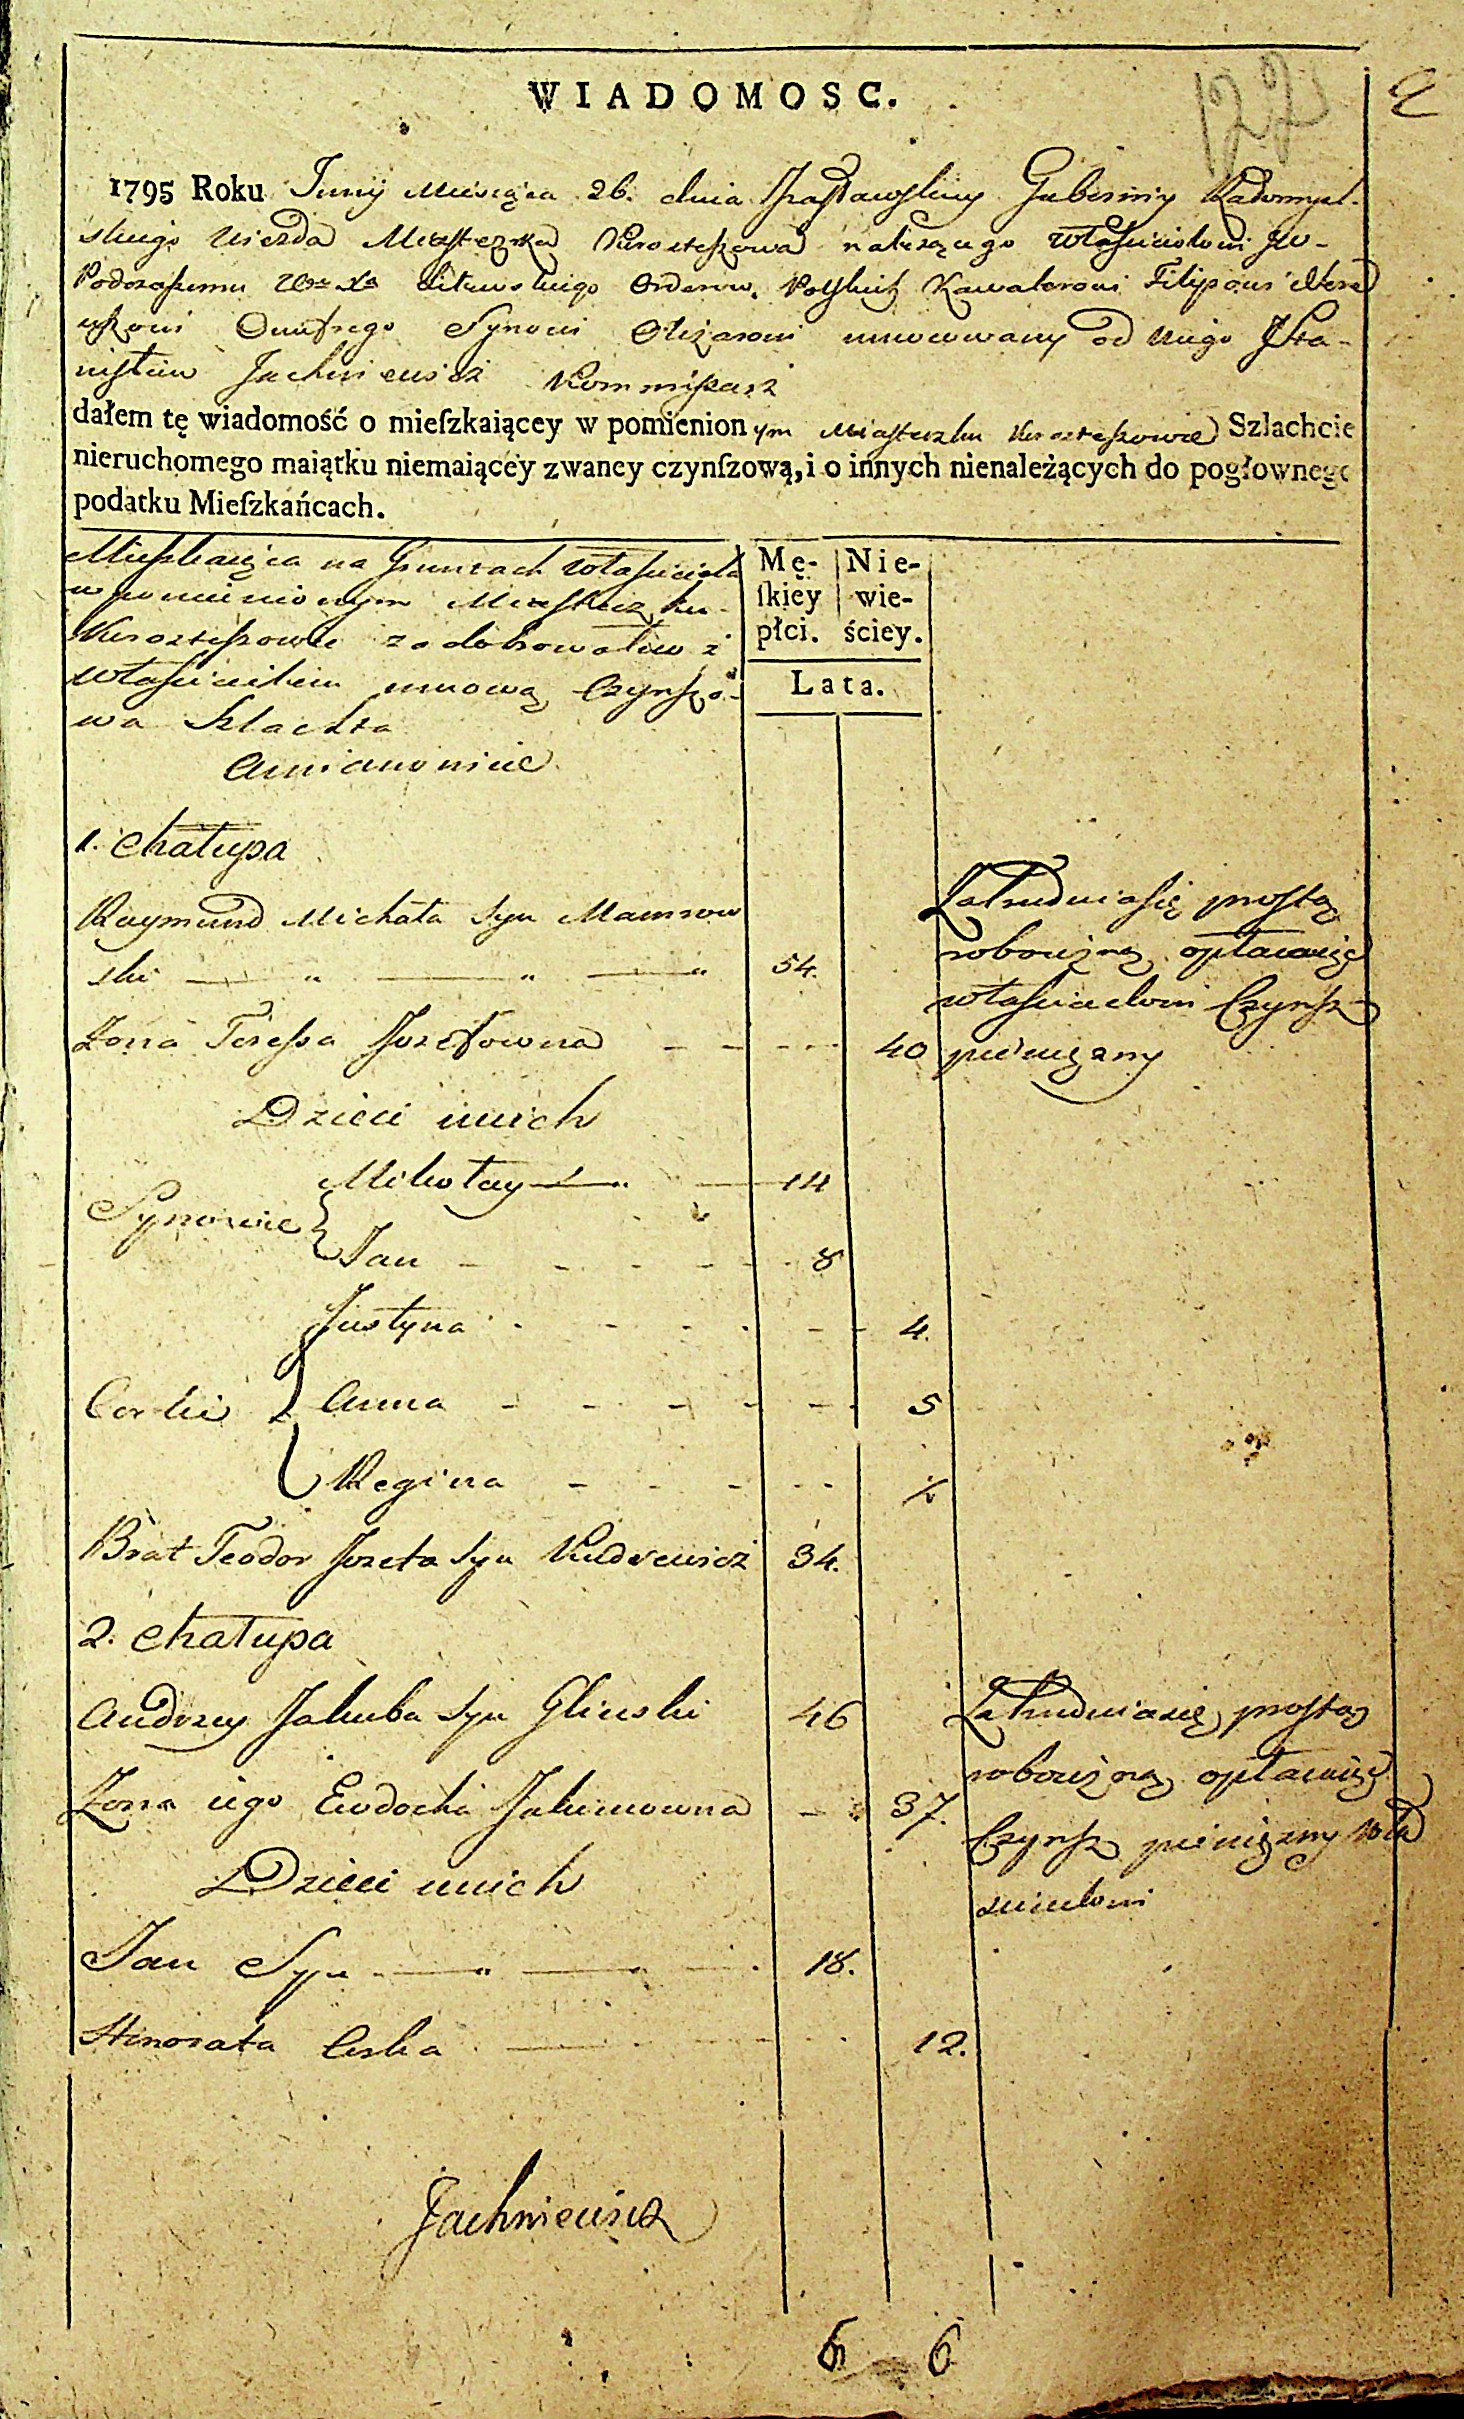 WIADOMOSC.
122
2
1795 Roku Junij Miesiąca 26. dnia Gubernij Radomysl-
skiego Uiezda Miasteczka Korosteszowa należącego Właścicielowi JW-
Podorażemu Litewskiego Orderow Polskich Kawalerowi Filipowi
Onufrego Synowi Olizarowi umocowany od niego Sta-
nisław Jachniewicz Kommissarz
dałem tę wiadomość o mieſzkaiącey w pomienionym Miasteczku Korosteszowie Szlachcie
nieruchomego maiątku niemaiącey zwaney czynſzową, i o innych nienależących do pogłownego
podatku Mieſzkańcach.
Mieszkaiąca na Gruntach Właściciela
w pomienionym Miasteczku
Korosteszowie za dobrowolną z
Właścicielem umową Czynszo-
wa Szlachta
a mianowicie
Mę- Nie-
ſkiey wie-
płci. ściey.
Lata.
1. Chałupa
Raymund Michała Syn
ski 54.
Zatrudnia się prostą
robocizną opłacaiąc
właścicielowi Czynsz
pieniężny
Żona Teressa Jozefowna 40
Dzieci u nich
Synowie Mikołay 14
Jan 8
Justyna 4.
Corki Anna 5
Regina ½
Brat Teodor Jozefa Syn Kudrewicz 34.
2. Chałupa
Andrzey Jakuba Syn Glinski 46
Zatrudnia się prostą
robocizną opłacaiąc
Czynsz pieniężny wła
scicielowi
Żona iego Ewdocha Jakimowna 37.
Dzieci u nich
Jan Syn 18.
Honorata Corka 12.
Jachniewicz
6 6